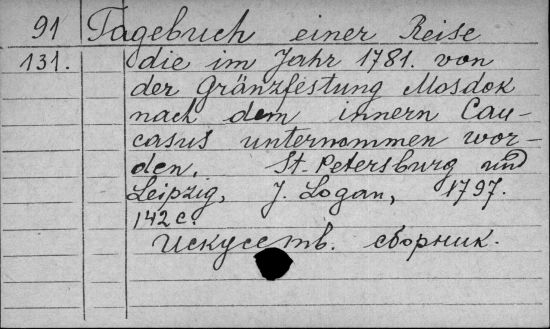 91 Tagebuch einer Reise
131. die im Jahr 1781. von
der Gränzfestung Mosdok
nach dem innern Cau-
casus unternommen wor-
den. St. Petersburg und
Leipzig, J. Logan, 1797.
142 с.
Искусств. сборник.